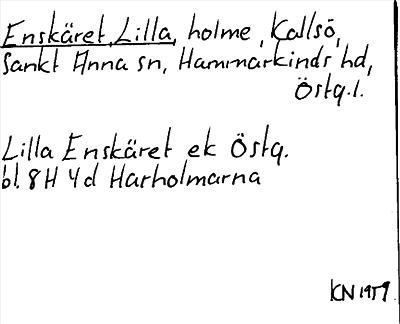 Enskäret, Lilla, holme, Kallsö,
Sankt Anna sn, Hammarkinds hd,
Östg.l.
Lilla Enskäret ek Östg.
bl. 8H 4d Harholmarna
KN 1959